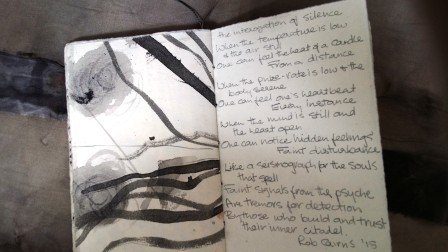 the interrogation of silence
When the temperature is low
& the air still
One can feel the heat of a Candle
From a distance
When the pulse-rate is low & the
body serene
One can feel one's heartbeat
Every instance
When the mind is still and
the heart open
One can notice hidden feelings'
Faint disturbance
Like a seismograph for the souls
that spell
Faint signals from the psyche
Are tremors for detection
By those who build and trust
their inner citadel.
Rob Cairns '15